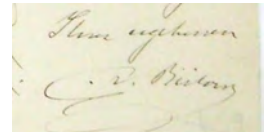 Ihr ergebener
v. Bülow